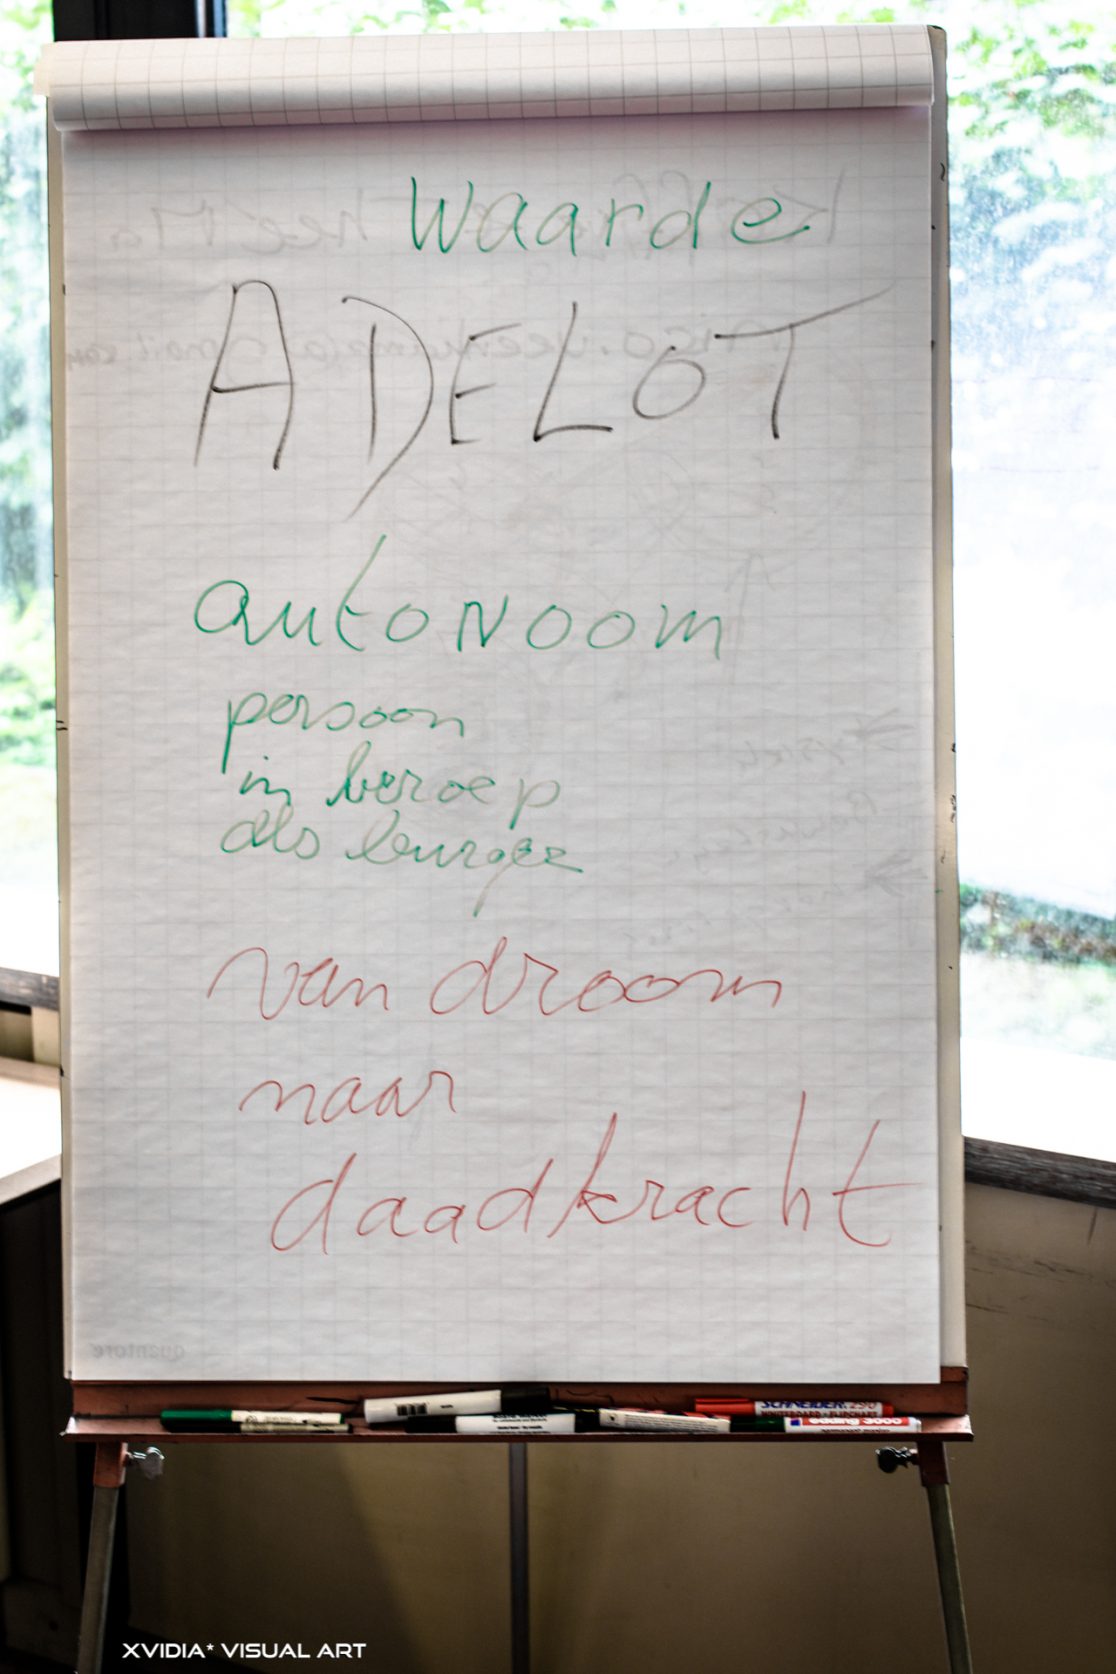 waarde
ADELOT
autonoom
persoon
in beroep
als burger
van droom
naar
daadkracht
quantore
SCHNEIDER 290
edding 3000
permanent marker
XVIDIA* VISUAL ART